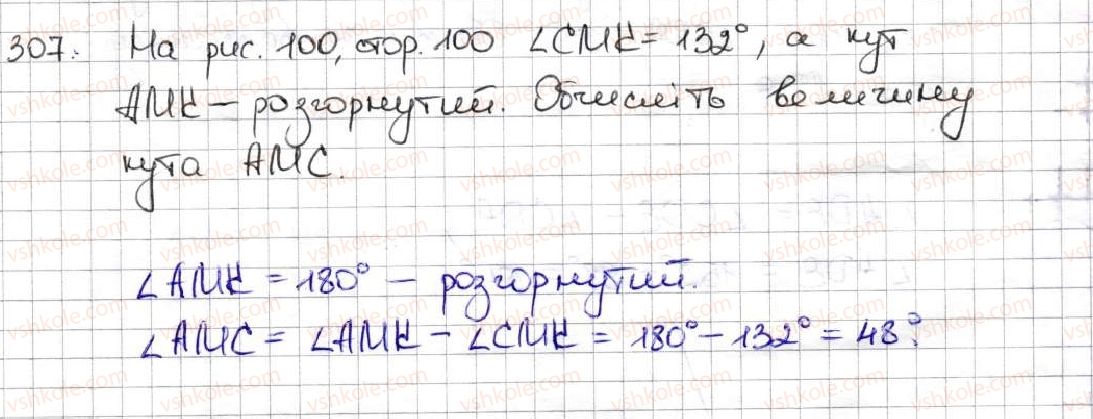 307. На рис. 100, стор. 100 ∠CMK = 132°, а кут
AMK – розгорнутий. Обчисліть величину
кута AMC.
∠AMK = 180° – розгорнутий.
∠AMC = ∠AMK – ∠CMK = 180° – 132° = 48°.